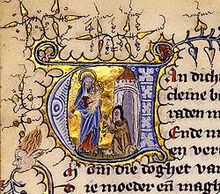 An dich
cleine b
raden m
Ende m
en ver
om die doghet va
ie moeder eñ ma